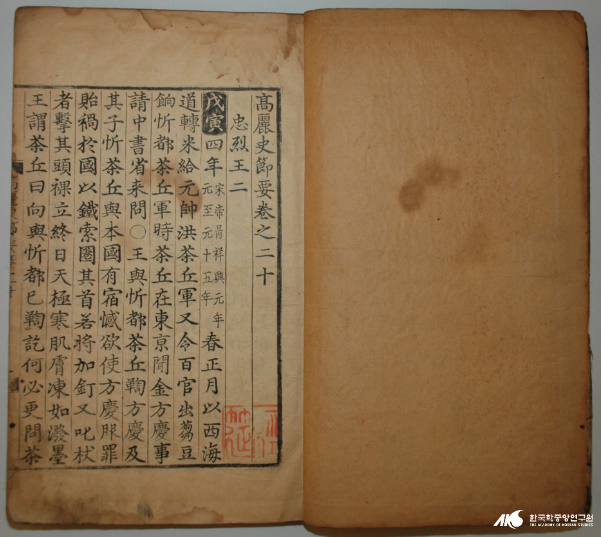 髙麗史節要卷之二十
忠烈王二
戊寅四年宋帝昺祥興元年元至元十五年春正月以西海
道轉米給元帥洪茶丘軍又令百官出蒭豆
餉忻都茶丘軍時茶丘在東京聞金方慶事
請中書省来問〇王與忻都茶丘鞫方慶及
其子忻茶丘與本國有宿憾欲使方慶服罪
貽禍於國以鐵索圈其首若將加釘又叱杖
者擊其頭裸立終日天極寒肌膚凍如潑墨
王謂茶丘曰向與忻都已鞫訖何必更問茶
한국학중앙연구원
THE ACADEMY OF KOREAN STUDIES